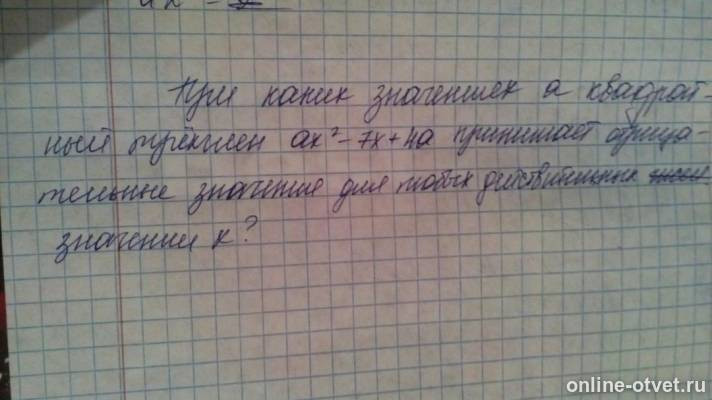 При каких значениях а квадрат-
ный трёхчлен ax²-7x+4a принимает отрица-
тельные значения для любых действительных
значений х?
online-otvet.ru